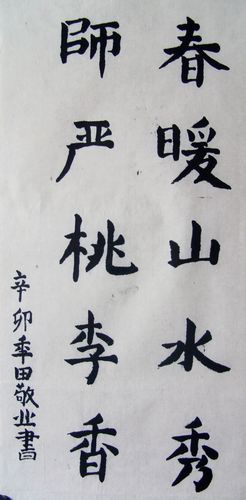 春暖山水秀
師严桃李香
辛卯季田敬业書